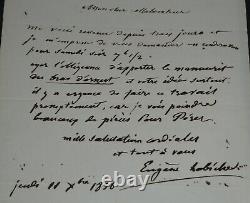 Mon cher collaborateur
me voici revenu depuis trois jours et
je m'empresse de vous demander un rendez vous
pour samedi soir 7 h 1/2
ayez l'obligeance d'apporter le manuscrit
du bras d'Ernest et votre idée surtout.
il y a urgence de faire ce travail
promptement, car je vois poindre
beaucoup de pièces pour
mille salutations cordiales
et tout à vous
Eugène Labiche
jeudi 11 Xbre 1856